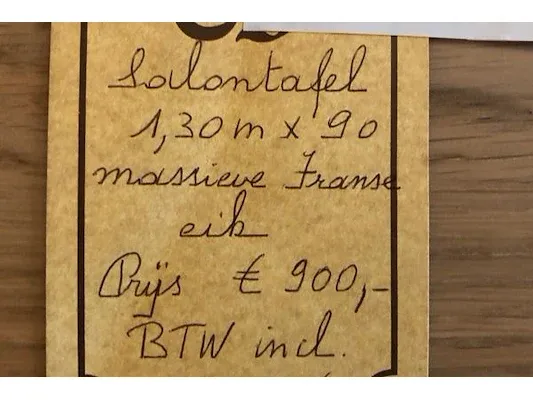 Salontafel
1,30 m x 90
massieve Franse
eik
Prijs € 900,-
BTW incl.